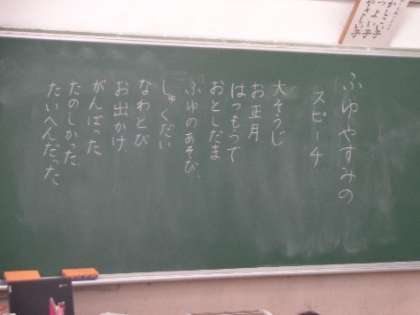 ふゆやすみの
スピーチ
大そうじ
お正月
はつもうで
おとしだま
ふゆのあそび、
しゅくだい
なわとび
お出かけ
がんばった
たのしかった
たいへんだった